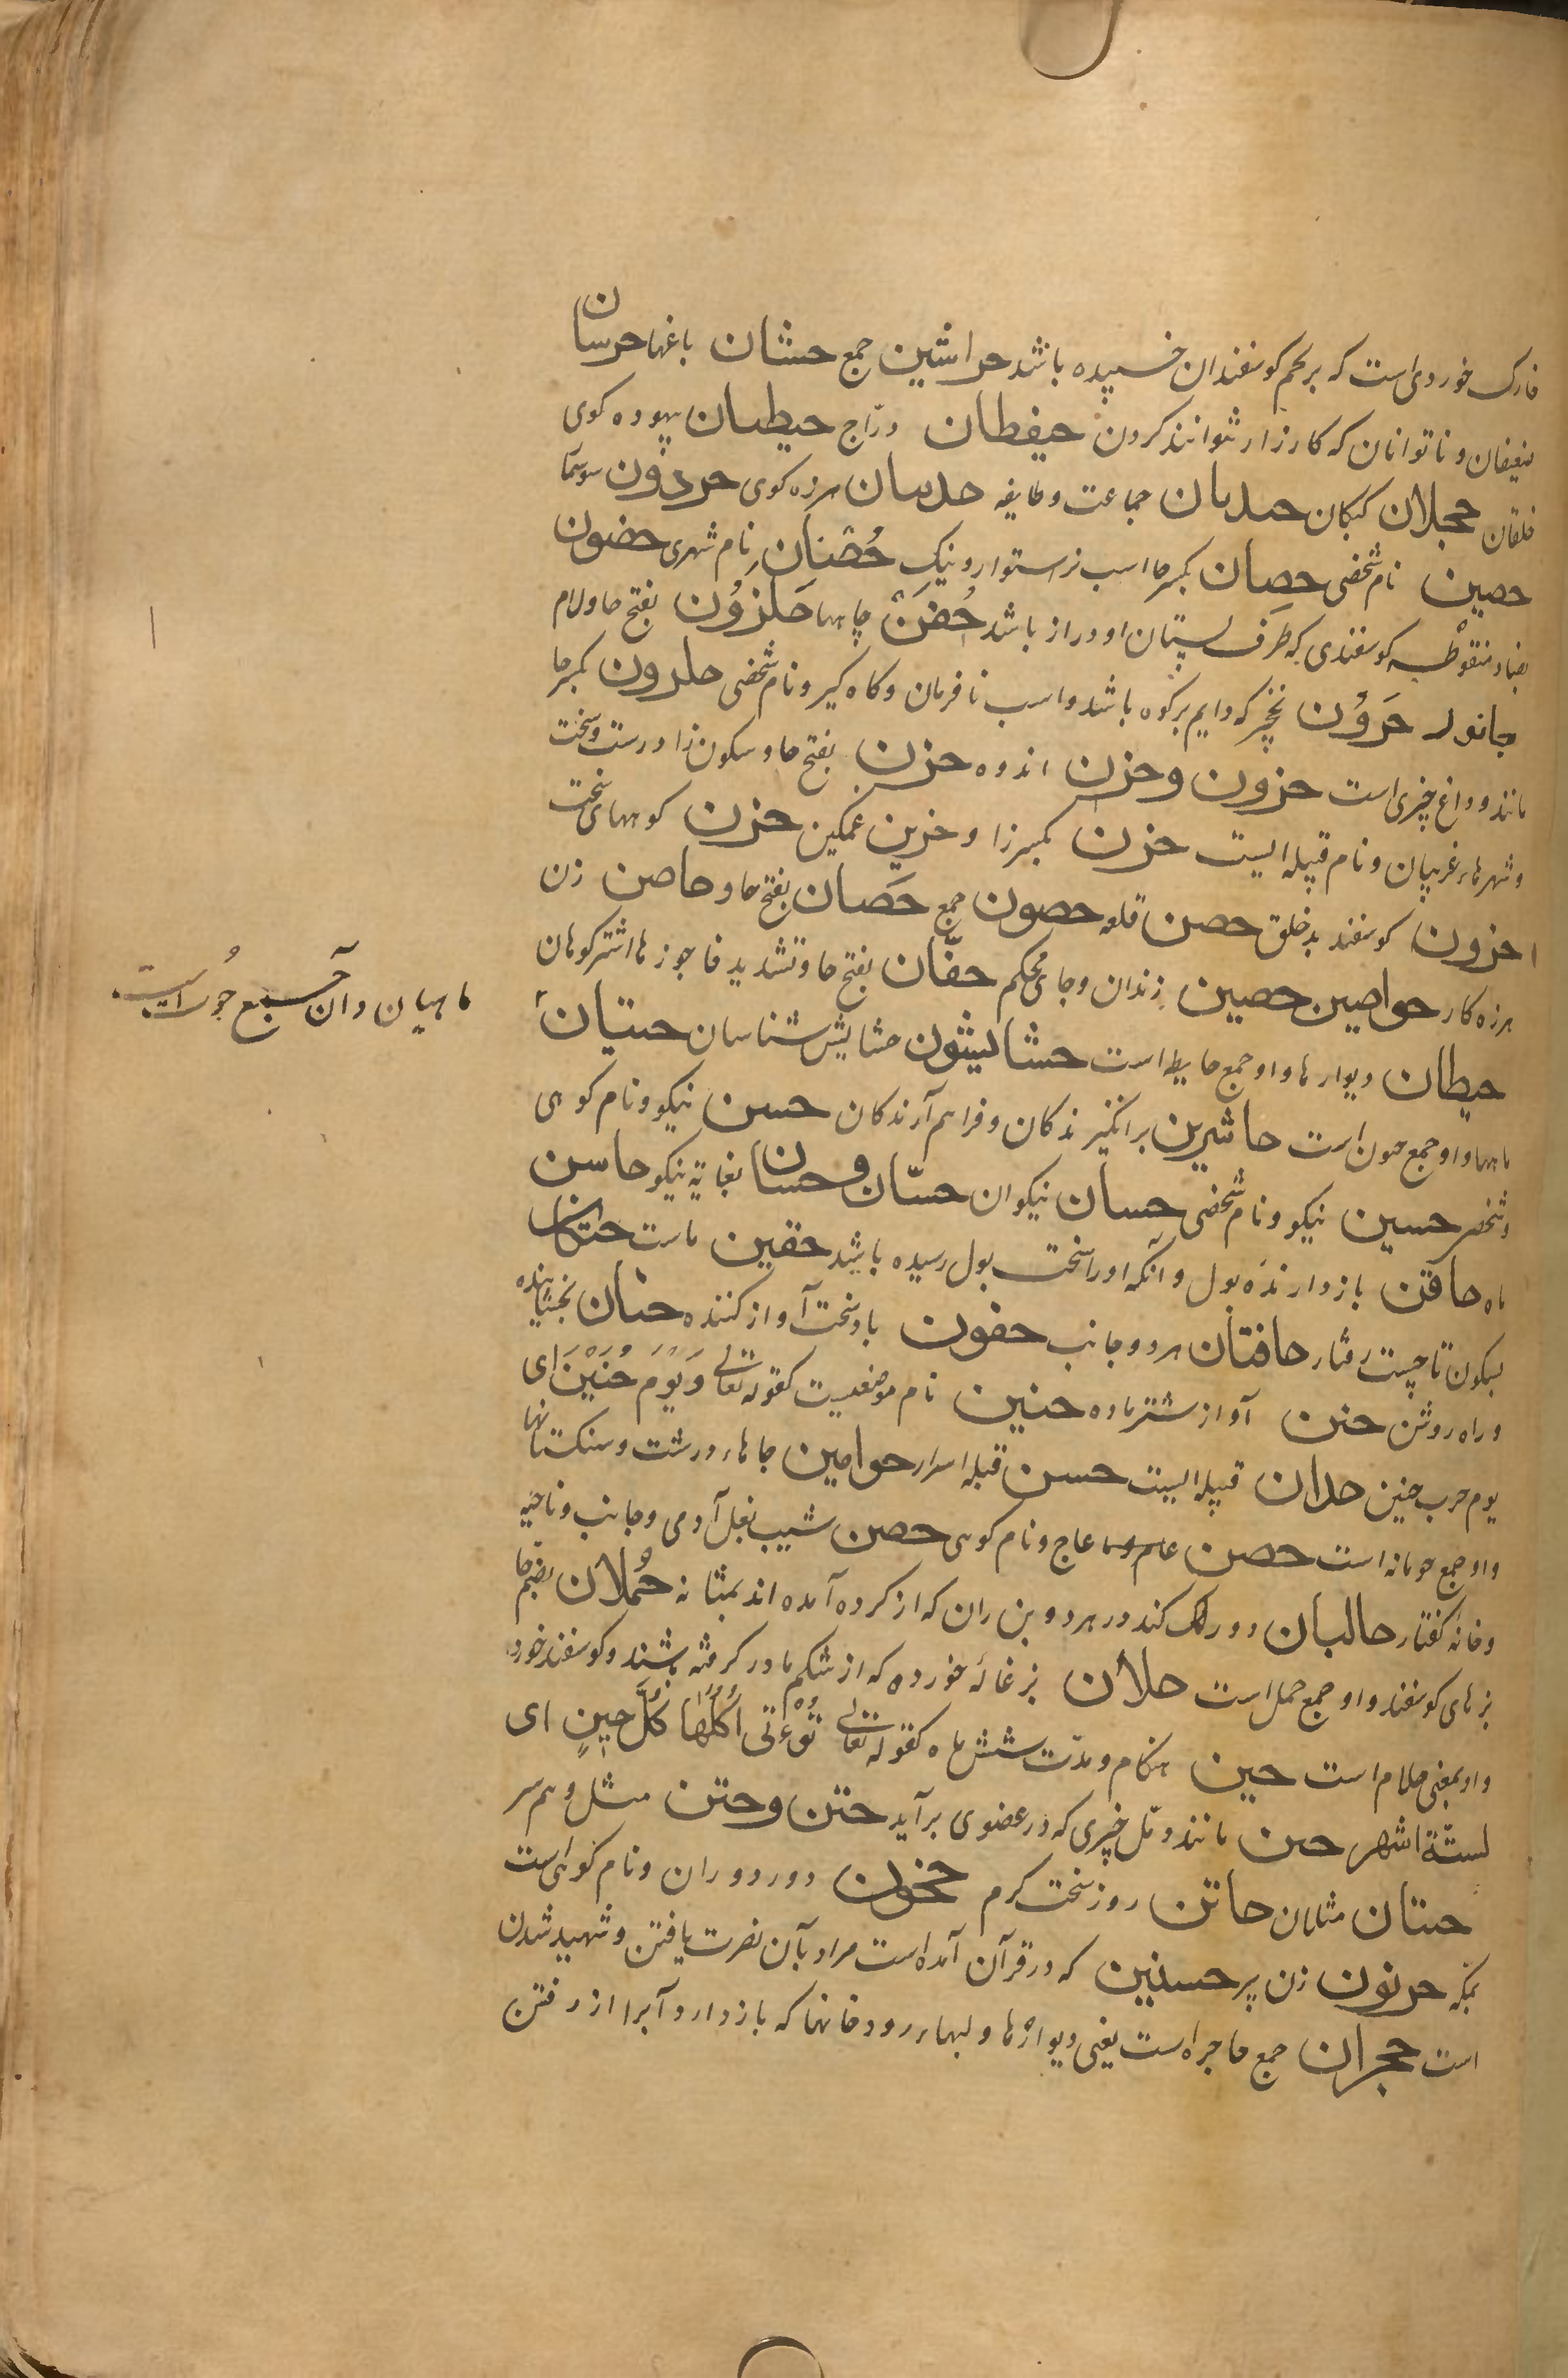 خارک خوردی است که بر لحم کوسفندان خسپیده باشد حراشین جمع حشان باغها حرسان
ضعیفان و ناتوانان که کارزار نتوانند کردن حیفطان درّاج حیطان بیهوده کوی
حجلان کبکان حدبان جماعت و طایفه حدسان هرزه کوی حرذون سوسمار
حصین نام شخصی حصان بکسر حا اسب نر استوار و نیک حُصْنان نام شهری حضون
بضاد منقوطه کوسفندی که طرف پستان او دراز باشد حُفَن چاهها حَلَزُون بفتح حا و لام
جانور حَرُون نخچیر که دایم بر کوه باشد و اسب نافرمان و کاه کیر و نام شخصی حلزون بکسر حا
مانند و داغ چیزی است حزون و حزن اندوه حزن بفتح حا و سکون زا درست و سخت
و شهرهاء غریبان و نام قبیله ایست حزن بکسر زا و حزین غمکین حزن کوههای سخت
حزون کوسفند بد خلق حصن قلعه حصون جمع حَصان بفتح حا و حاصن زن
هرزه کار حواصین حصین زندان و جای محکم حفّان بفتح حا و تشدید فا جوزها اشتر کوهان
حیطان دیوارها و او جمع حایط است حشائیشون حشایش شناسان حیتان
ماهها و او جمع حون است حاشرین برانکیزندکان و فراهم آرندکان حسن نیکو و نام کوهی
و شخصی حسین نیکو و نام شخصی حسان نیکوان حسّان و حسان بغایة نیکو حاسن
ماه حاقن بازدارنده بول و آنکه او را سخت بول رسیده باشد حقین ماست حتکان
بسکون تا چست رفتار حافتان هر دو جانب حفون باد سخت آواز کننده حنان بخشاینده
و راه روشن حنن آواز شتر ماده حنین نام موضعیست کقوله تعالی وَیَوْمَ حُنَیْنَ ای
یوم حرب حنین حدان قبیله ایست حسن قبله اسرار حوامین جاهاء درشت و سنکستانها
و او جمع حومانه است حصن عاج و نام کوهی حصن شیب بغل آدمی و جانب و ناحیه
و خانه کفتار حالبان دو رک کند در هر دو بن ران که از کرده آمده اند بمثانه حُملان بضم حا
بزهای کوسفند و او جمع حمل است حلان بزغاله خورده که از شکم مادر کرفته باشند و کوسفند خورد
و او بمعنی حلام است حین هنکام و مدّت شش ماه کقوله تعالی تُوءْتی اُکُلَها کُلَّ حینٍ ای
لستّة اشهر حبن مانند دمّل چیزی که در عضوی برآید حتن و حتن مثل و هم سر
حتنان مثلان حاتن روز سخت کرم حخون دور دوران و نام کوهی است
بمکه حرنون زن پیر حسنیین که در قرآن آمده است مراد بآن نصرت یافتن و شهید شدن
است حجران جمع حاجر است یعنی دیوارها و لبهاء رودخانها که باز دارد آبرا از رفتن
ماهیان و آن جمع حوت است